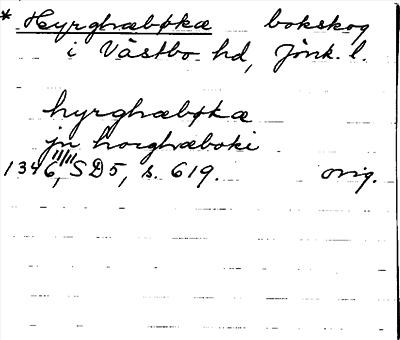 * Hyrghæbøkæ bokskog
i Västbo hd, Jönk. l.
hyrghæbøkæ
jn horghæboki
1346 11/11, SD5, s. 619. orig.